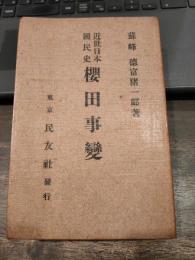 蘇峰 德富猪一郎著
近世日本
國民史
櫻田事變
東京 民友社 發行